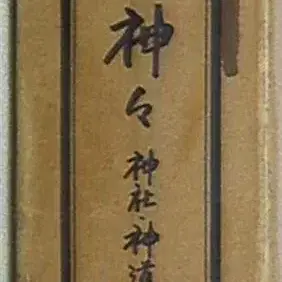 神々
神社・神道